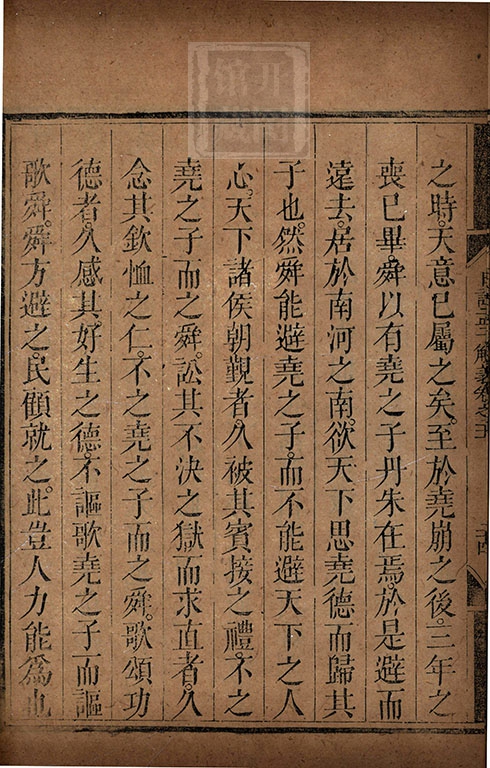 之時。天意已屬之矣。至於堯崩之後。三年之
喪已畢。舜以有堯之子丹朱在焉。於是避而
遠去。居於南河之南。欲天下思堯德而歸其
子也。然舜能避堯之子。而不能避天下之人
心。天下諸侯朝覲者。久被其賓接之禮。不之
堯之子而之舜。訟其不決之獄而求直者。久
念其欽恤之仁。不之堯之子而之舜。歌頌功
德者。久感其好生之德。不謳歌堯之子而謳
歌舜。舜方避之。民顧就之。此豈人力能為也